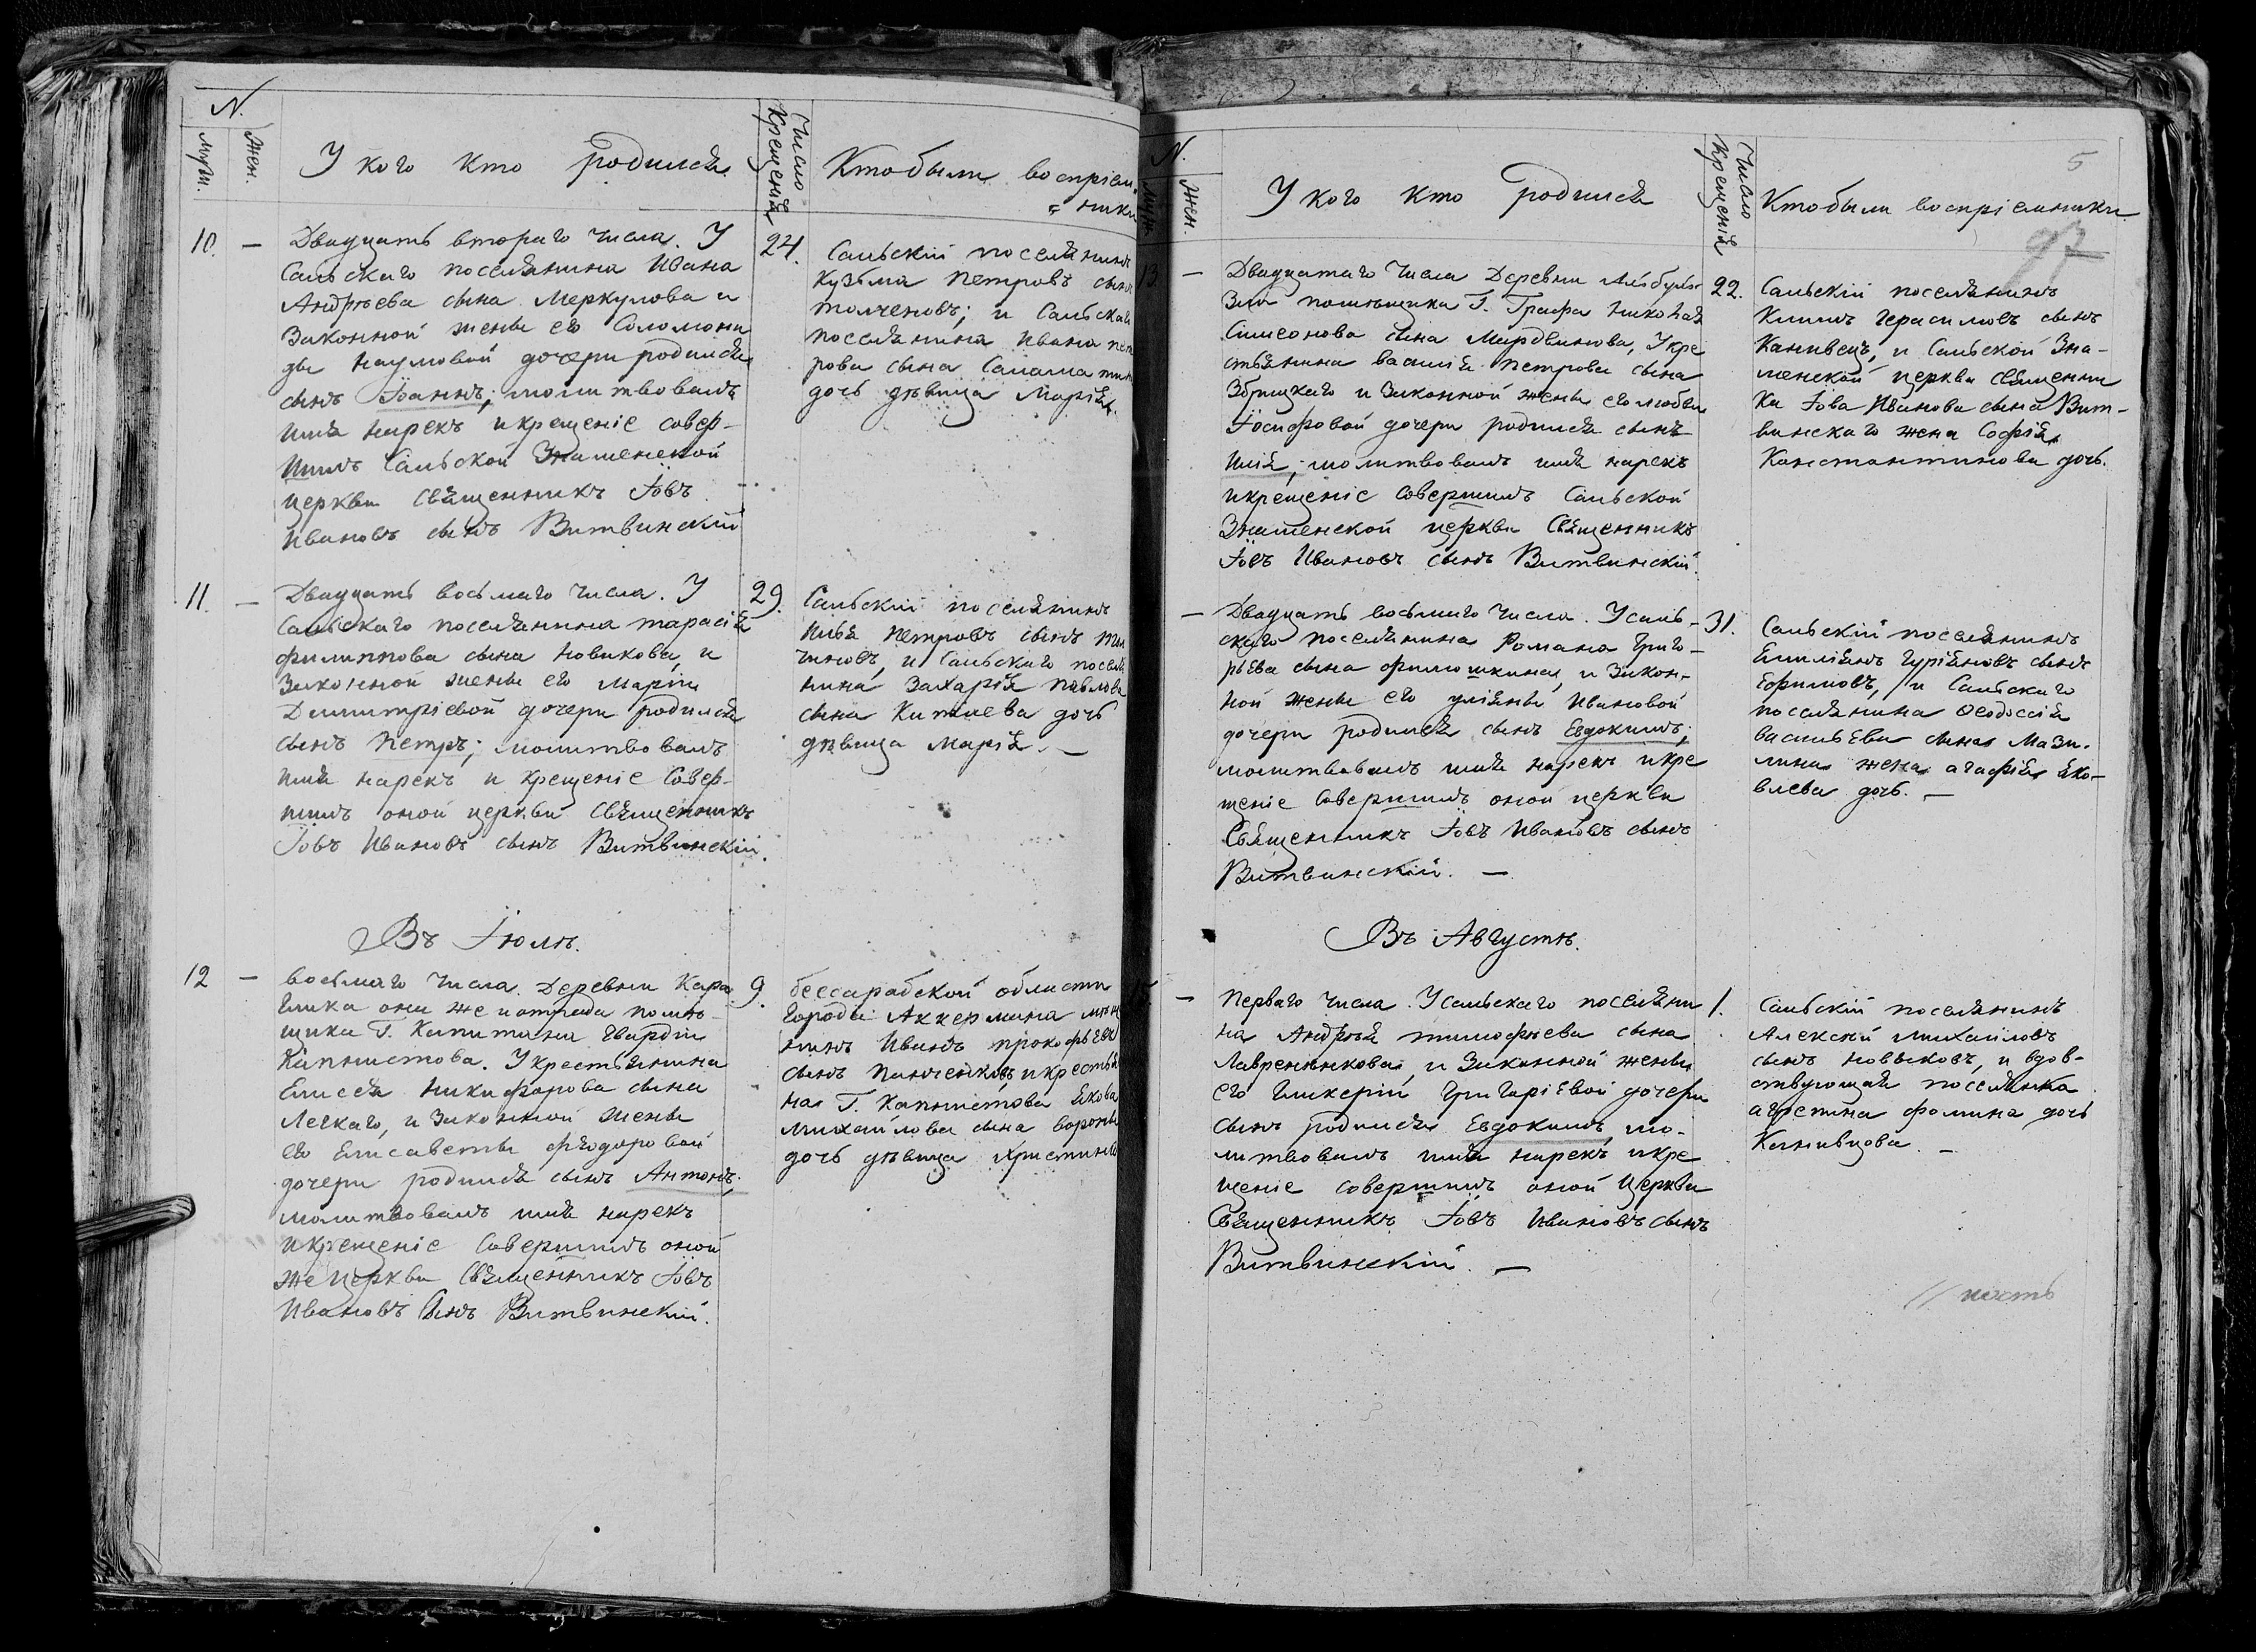 N.
муж.
Жен.
У кого кто родился
Число Крещенія
Кто были воспріем-
ники
10. —
Двадцать втораго числа. У
Сальскаго поселянина Ивана
Андрѣева сына Меркулова и
Законной жены его Соломони
ды Наумовой дочери родился
сынъ Іоаннъ; молитвовалъ
имя нарекъ и крещеніе совер-
шилъ Сальской Знаменской
церкви Священникъ Іовъ
Ивановъ сынъ Витвинскій
24.
Сальскій поселянинъ
Кузьма Петровъ сынъ
Толченовъ; и Сальскаго
поселянина Ивана Пет
рова сына
дочь дѣвица Марія.
11. —
Двадцать восьмаго числа. У
Сальскаго поселянина Тарасія
Филиппова сына Новикова, и
Законной жены его Маріи
Димитріевой дочери родился
сынъ Петръ; молитвовалъ
имя нарекъ и крещеніе Совер-
шилъ оной церкви Священникъ
Іовъ Ивановъ сынъ Витвинскій.
29.
Сальскій поселянинъ
Илья Петровъ сынъ
и Сальскаго поселя
нина Захарія Павлова
сына Китаева дочь
дѣвица Марія. —
Въ Іюлѣ.
12 —
восьмаго числа. Деревни Кара
она же помѣ-
щика Г. Капитана Гвардіи
Капнистова. У крестьянина
Елисея Никифорова сына
Легкаго, и Законной жены
его Елисаветы Фѣодоровой
дочери родился сынъ Антонъ;
молитвовалъ имя нарекъ
и крещеніе Совершилъ оной
же церкви Священникъ Іовъ
Ивановъ Сынъ Витвинскій.
9.
бессарабской области
города Аккермана
Иванъ Прокофьевъ
сынъ Панченковъ и крестья
на Г. Капнистова Якова
Михайлова сына
дочь дѣвица Христина
N.
Муж.
Жен.
У кого кто родился
Число Крещенія
Кто были воспріемники
5
97
13. —
Двадцатаго числа Деревни
помѣщика Г. Графа Николая
Симеонова сына Мордвинова, У кре
стьянина Василія Петрова сына
Збрицкаго и Законной жены его Любви
Іосифовой дочери родился сынъ
Илія; молитвовалъ имя нарекъ
и крещеніе Совершилъ Сальской
Знаменской церкви Священникъ
Іовъ Ивановъ Сынъ Витвинскій.
22.
Сальскій поселянинъ
Климъ Герасимовъ сынъ
Канивецъ, и Сальской Зна-
менской церкви Священни
ка Іова Иванова сына Вит-
винскаго жена Софія
Константинова дочь.
—
Двадцать восьмаго числа. У саль-
скаго поселянина Романа Григо-
рьева сына Филюшкина, и Закон-
ной жены его Уліяны Ивановой
дочери родился сынъ Евдокимъ;
молитвовалъ имя нарекъ и кре
щеніе Совершилъ оной церкви
Священникъ Іовъ Ивановъ сынъ
Витвинскій. —
31.
Сальскій поселянинъ
Емиліянъ Гуріяновъ сынъ
Ефимовъ, и Сальскаго
поселянина Ѳеодосія
Васильева сына Мази-
лина жена Агафія Яко-
влева дочь. —
Въ Августѣ.
15. —
Перваго числа. У сальскаго поселяни
на Андрѣя Тимофѣева сына
Лавренюкова, и Законной жены
его Гликеріи Григоріевой дочери
сынъ родился Евдокимъ, мо-
литвовалъ имя нарекъ и кре
щеніе совершилъ оной Церкви
Священникъ Іовъ Ивановъ сынъ
Витвинскій. —
1.
Сальскій поселянинъ
Алексѣй Михайловъ
сынъ Новыковъ, и вдов-
ствующая поселянка
Агрепина Фомина дочь
Канивцова. —